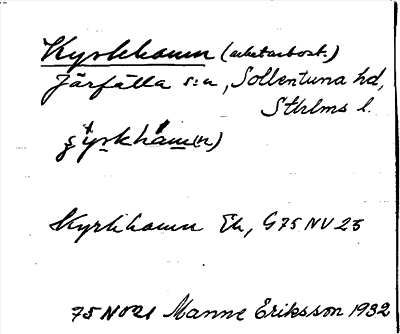 Kyrkhamn (arbetarbost.)
Järfälla s:n, Sollentuna hd,
Sthlms l.
Kyrkhamn Ek, G75 NV 25
75 NV 21 Manne Eriksson 1932